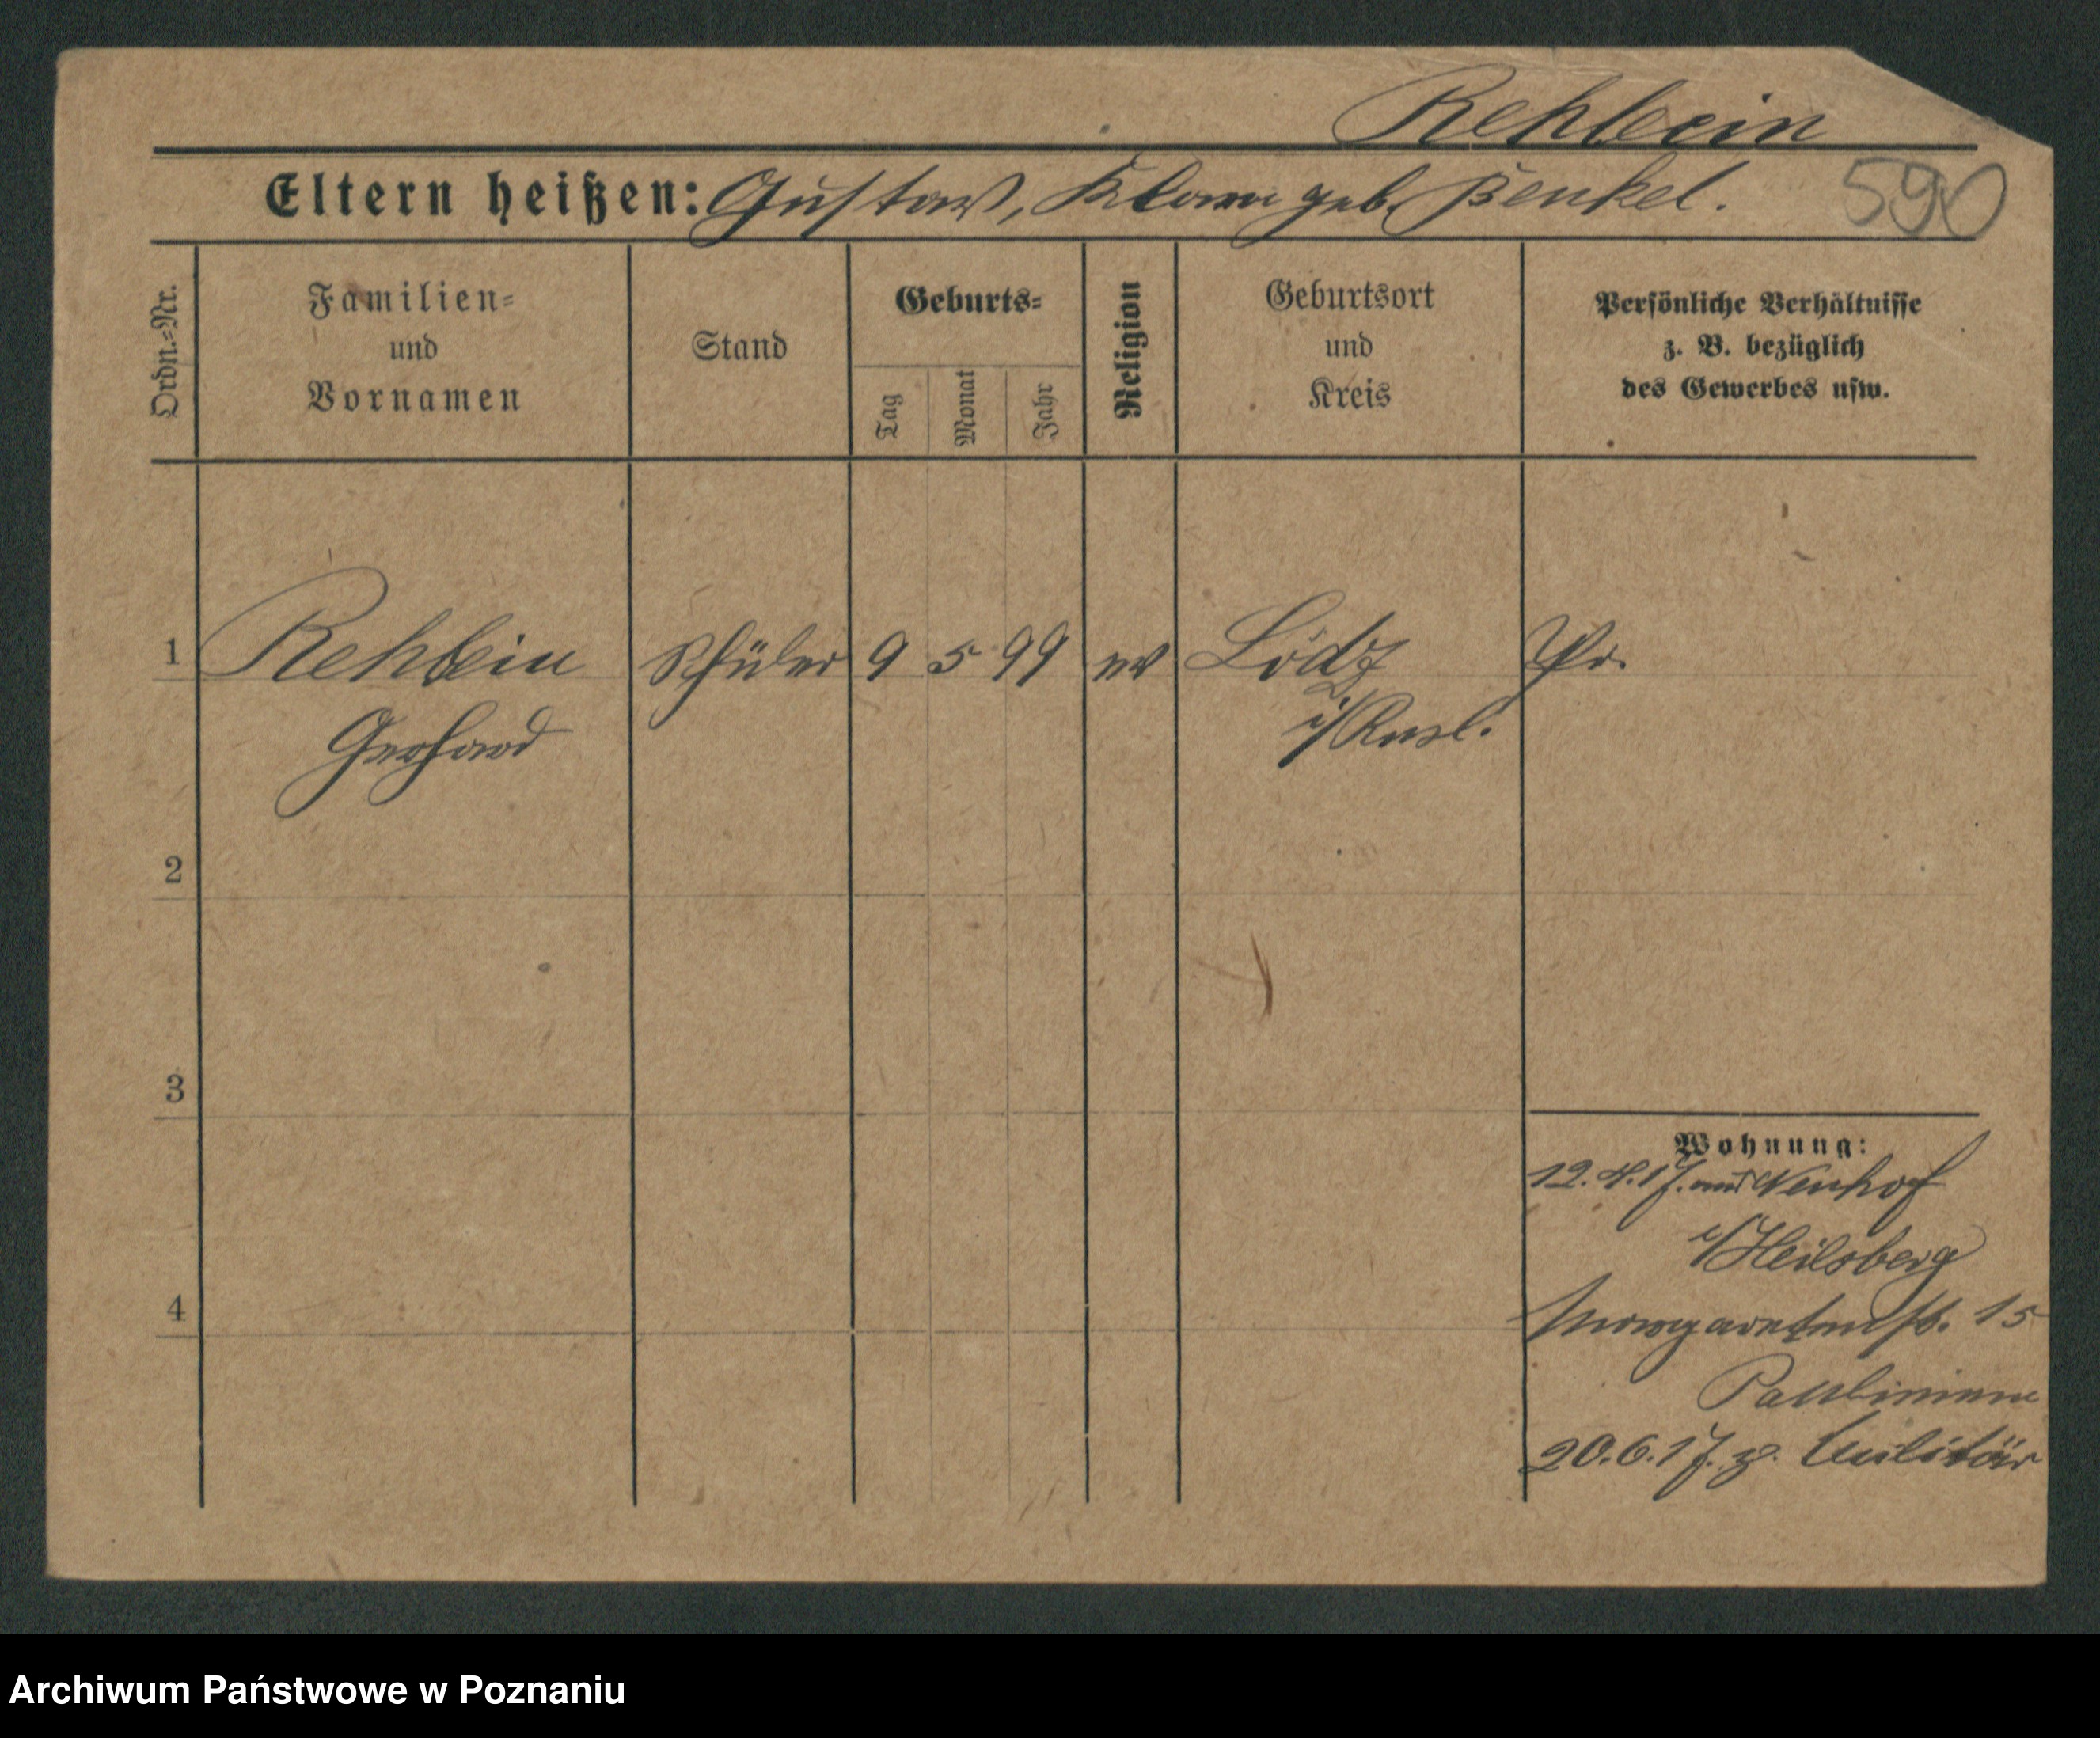 Rehbein
Eltern heißen: Gustav, Klara geb. Benkel. 590
Ordn.=Nr.
Familien=
und
Vornamen
Stand
Geburts=
Tag
Monat
Jahr
Religion
Geburtsort
und
Kreis
Persönliche Verhältnisse
z. B. bezüglich
des Gewerbes usw.
1 Rehbein Schüler 9 5 99 ev Lódz Pr.
Gerhard i/Russl.
2
3
4
Wohnung:
12.4.17. aus Neuhof
i/Heilsberg
Margaretenstr. 15
Paulinium
20.6.17. z. Militär
Archiwum Państwowe w Poznaniu